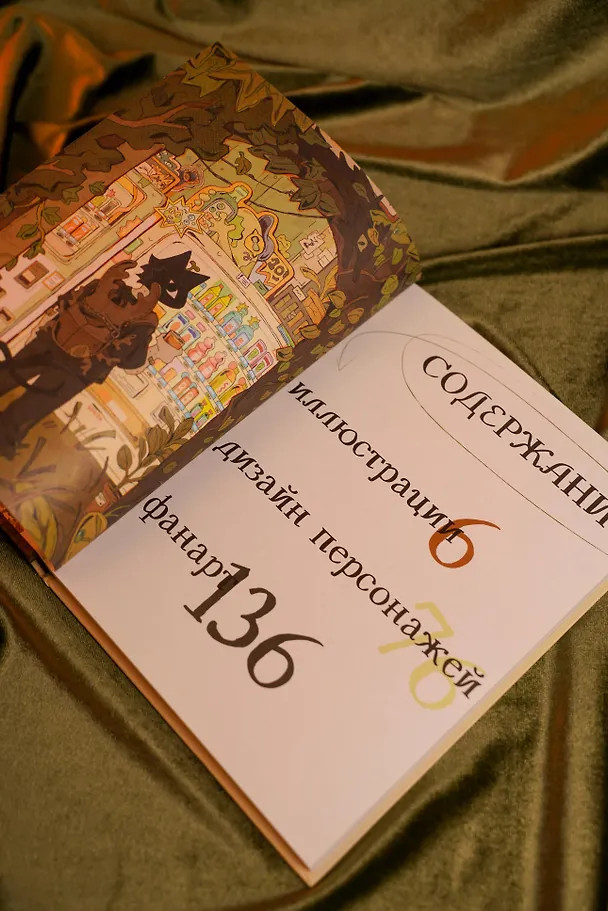 СОДЕРЖАНИ
иллюстрации 6
дизайн персонажей 76
фанарт 136